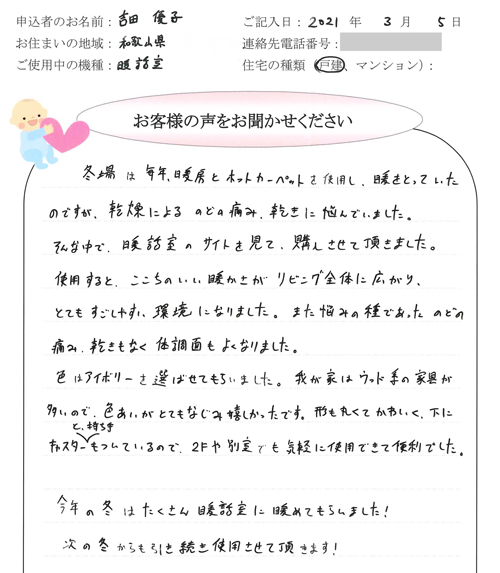 申込者のお名前：吉田 優子
ご記入日：2021 年 3 月 5 日
お住まいの地域：和歌山県
連絡先電話番号：
ご使用中の機種：暖話室
住宅の種類（戸建、マンション）：
お客様の声をお聞かせください
冬場は毎年、暖房とホットカーペットを使用し、暖をとっていた
のですが、乾燥によるのどの痛み、乾きに悩んでいました。
そんな中で、暖話室のサイトを見て、購入させて頂きました。
使用すると、ここちのいい暖かさがリビング全体に広がり、
とてもすごしやすい環境になりました。また悩みの種であったのどの
痛み、乾きもなく体調面もよくなりました。
色はアイボリーを選ばせてもらいました。我が家はウッド系の家具が
多いので、色あいがとてもなじみ嬉しかったです。形も丸くてかわいく、下に
キャスターと、持ち手もついているので、2Fや別室でも気軽に使用できて便利でした。
今年の冬はたくさん暖話室に暖めてもらいました！
次の冬からも引き続き使用させて頂きます！